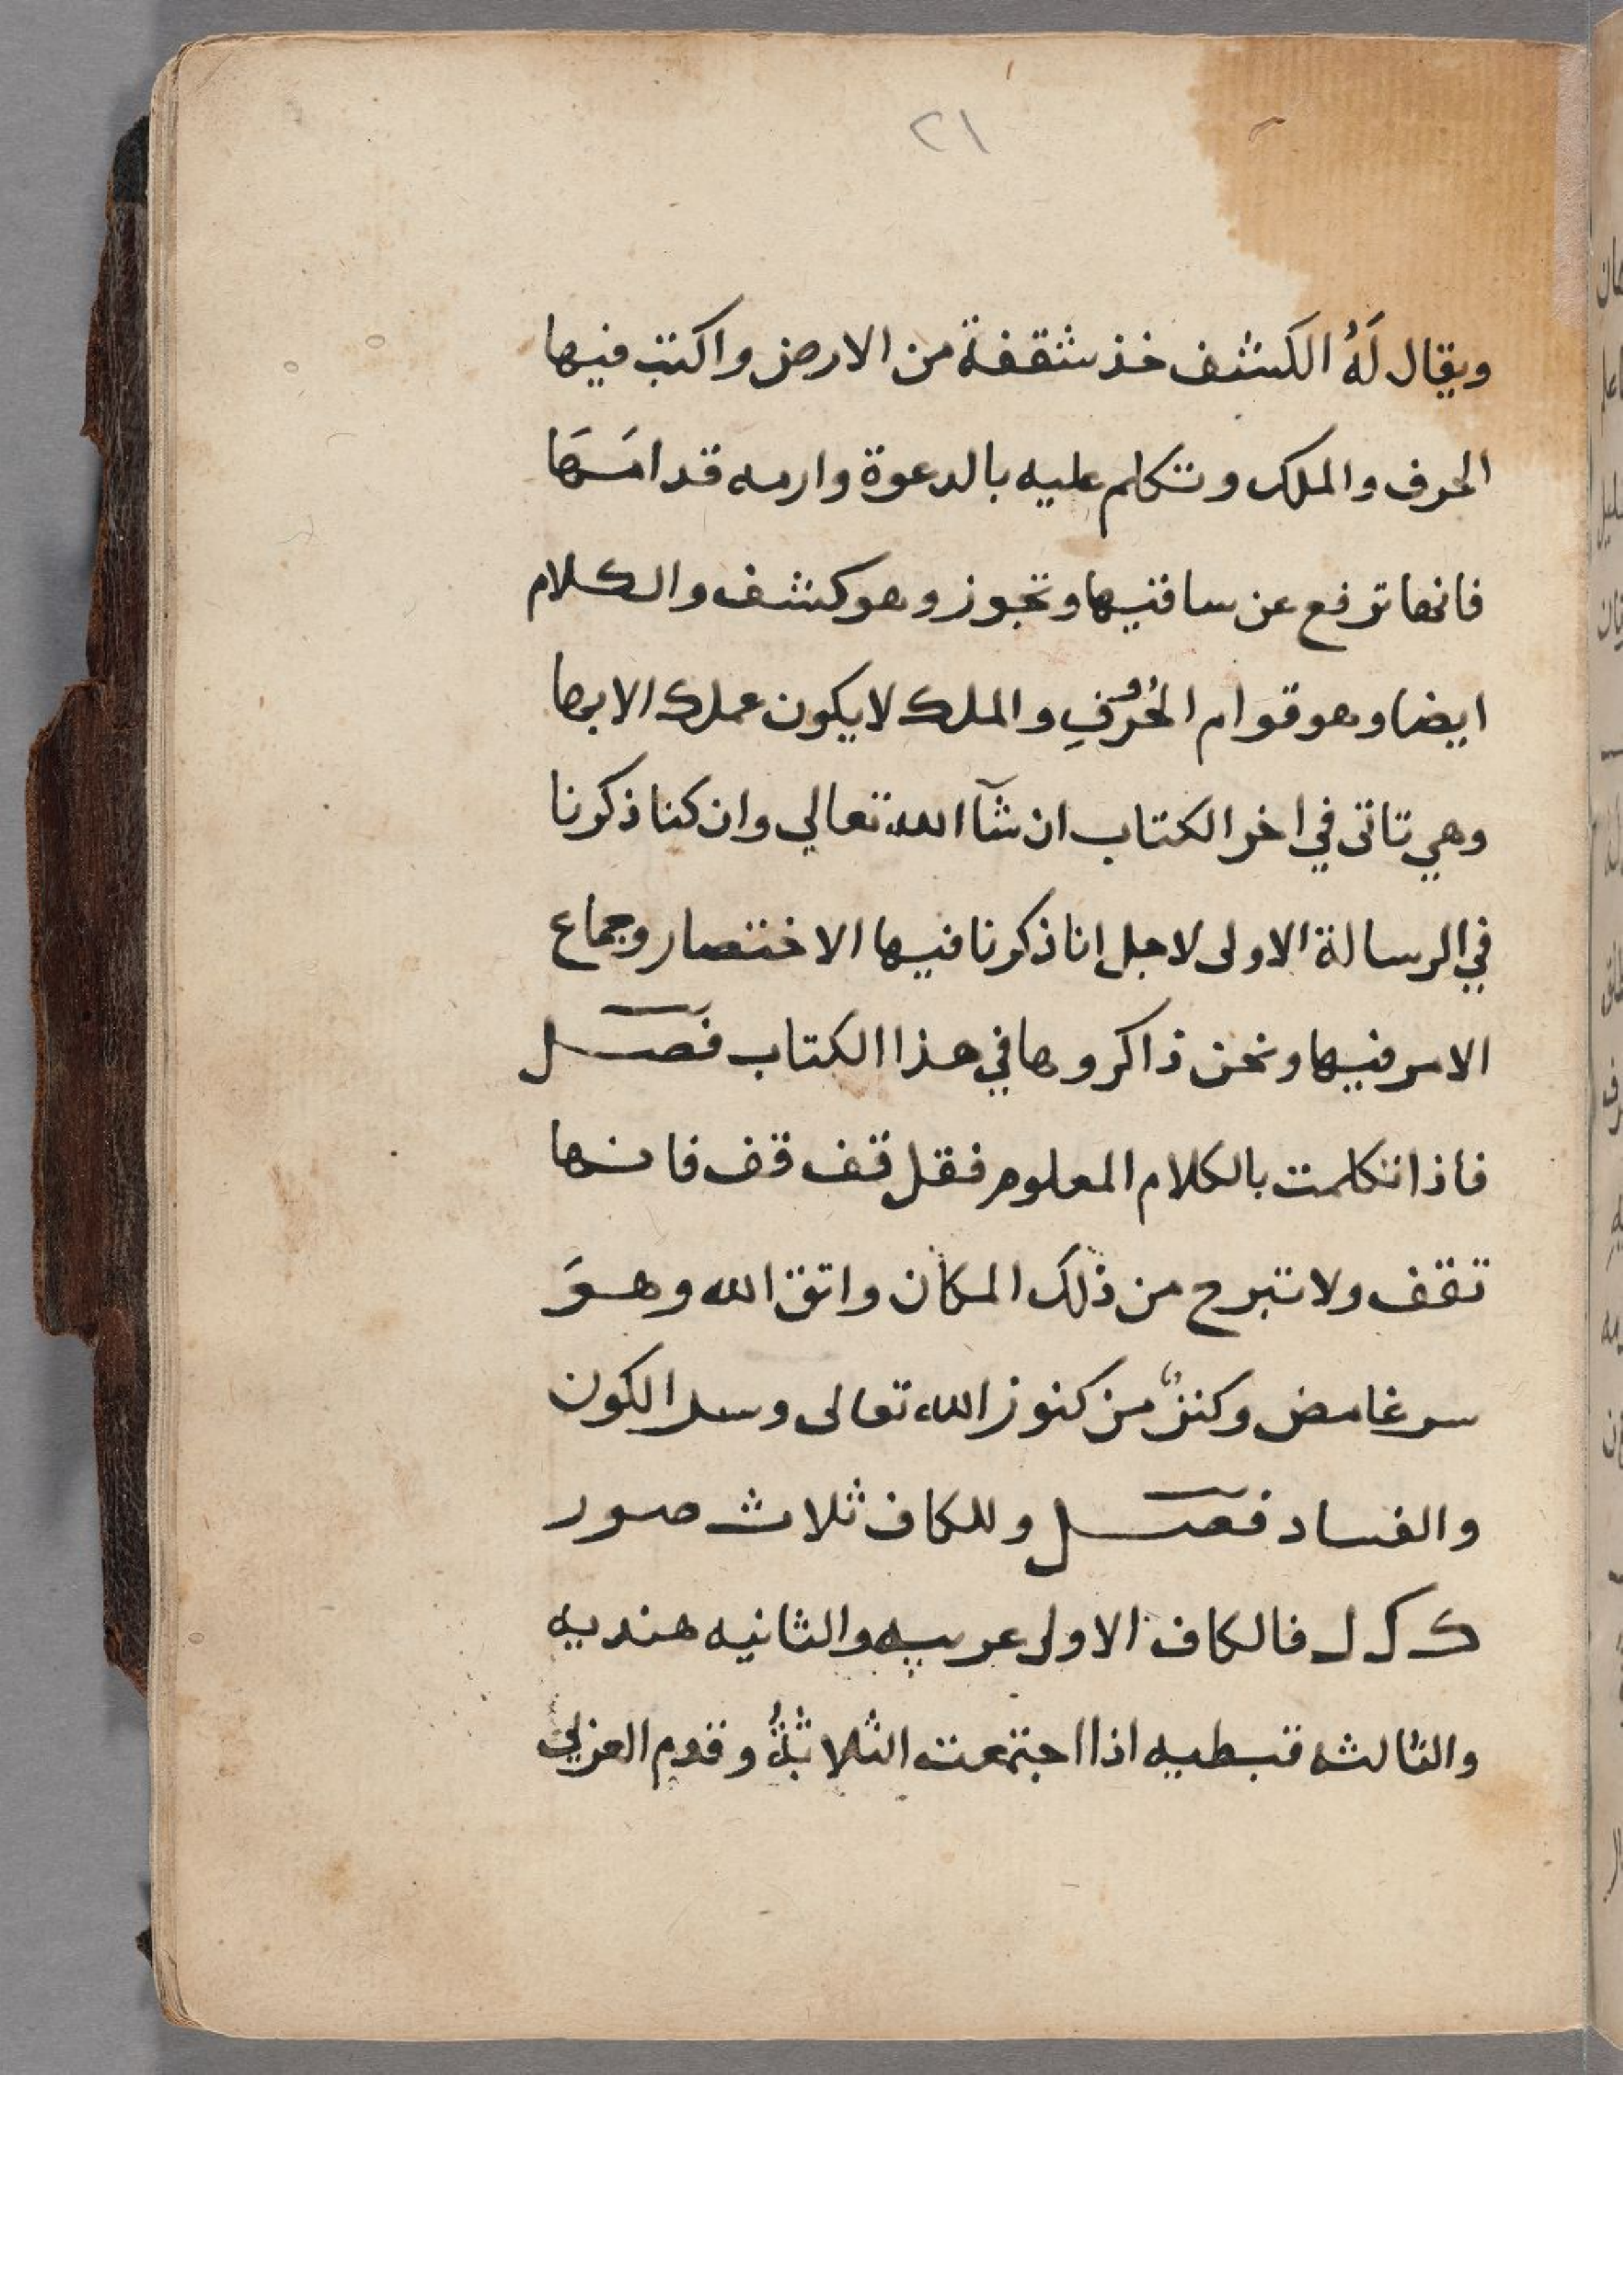 ٢١
ويقال لَهُ الكشف خذ شقفة من الارض واكتب فيها
الحرف والملك وتكلم عليه بالدعوة وارمه قدامَهَا
فانها ترفع عن ساقيها وتجوز وهو كشف والكلام
ايضا وهو قوام الحُرُوفِ والملك لا يكون عملك الا بها
وهي تاتى في اخر الكتاب ان شآ الله تعالي وان كنا ذكرنا
في الرسالة الاولى لاجل انا ذكرنا فيها الاختصار وجماع
الامر فيها ونحن ذاكروها في هذا الكتاب فصل
فاذا تكلمت بالكلام المعلوم فقل قف قف فانها
تقف ولا تبرح من ذلك المكان واتق الله وهوَ
سر غامض وكنزٌ من كنوز الله تعالى وسر الكون
والفساد فصل وللكاف ثلاث صور
ك فالكاف الاولى عربيه والثانيه هنديه
والثالثه قبطيه اذا اجتمعت الثلاثةُ وقدم